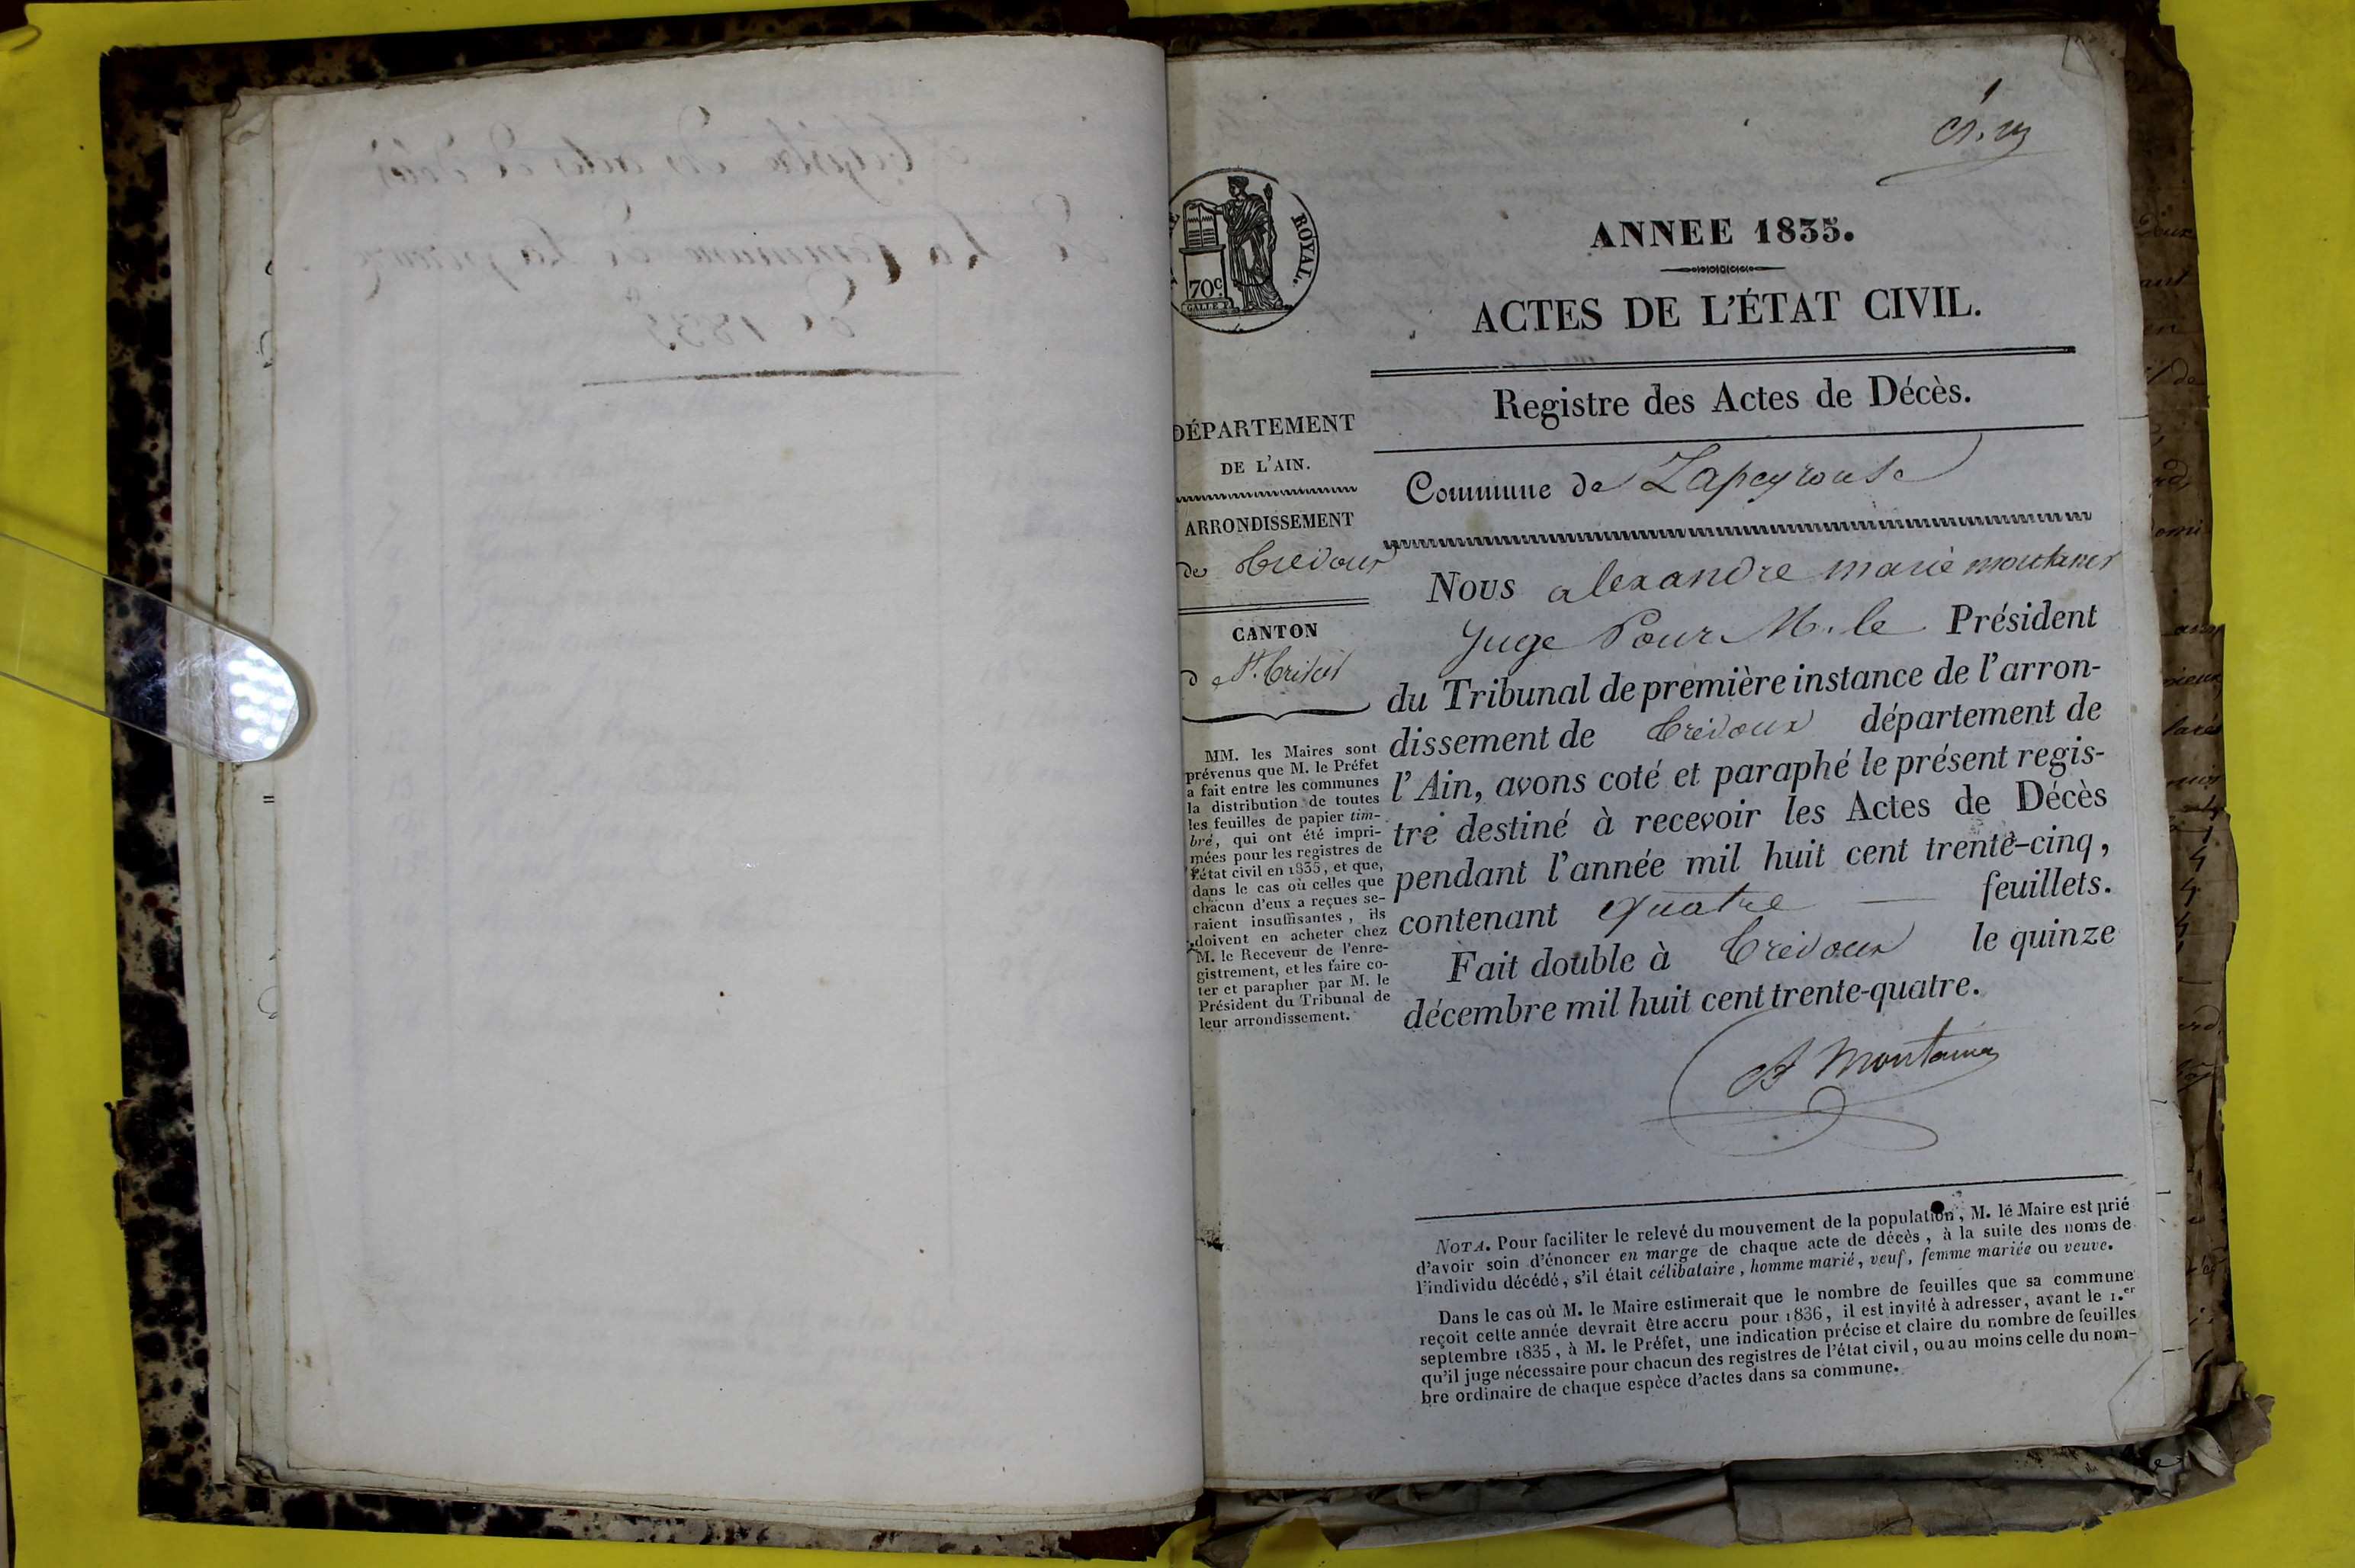 ROYAL.
70c.
GALLE F.
1
ANNEE 1835.
ACTES DE L'ÉTAT CIVIL.
Registre des Actes de Décès.
Commune de Lapeyrouse
DÉPARTEMENT
DE L'AIN.
ARRONDISSEMENT
de Trévoux
CANTON
de St. Trivier
MM. les Maires sont
prévenus que M. le Préfet
a fait entre les communes
la distribution de toutes
les feuilles de papier tim-
bré, qui ont été impri-
mées pour les registres de
l'état civil en 1835, et que,
dans le cas où celles que
chacun d'eux a reçues se-
raient insuffisantes, ils
doivent en acheter chez
M. le Receveur de l'enre-
gistrement, et les faire co-
ter et parapher par M. le
Président du Tribunal de
leur arrondissement.
Nous alexandre marie
Juge Pour M. le Président
du Tribunal de première instance de l'arron-
dissement de Trévoux département de
l'Ain, avons coté et paraphé le présent regis-
tre destiné à recevoir les Actes de Décès
pendant l'année mil huit cent trente-cinq,
contenant quatre — feuillets.
Fait double à Trévoux le quinze
décembre mil huit cent trente-quatre.
NOTA. Pour faciliter le relevé du mouvement de la population, M. le Maire est prié
d'avoir soin d'énoncer en marge de chaque acte de décès, à la suite des noms de
l'individu décédé, s'il était célibataire, homme marié, veuf, femme mariée ou veuve.
Dans le cas où M. le Maire estimerait que le nombre de feuilles que sa commune
reçoit cette année devrait être accru pour 1836, il est invité à adresser, avant le 1.er
septembre 1835, à M. le Préfet, une indication précise et claire du nombre de feuilles
qu'il juge nécessaire pour chacun des registres de l'état civil, ou au moins celle du nom-
bre ordinaire de chaque espèce d'actes dans sa commune.